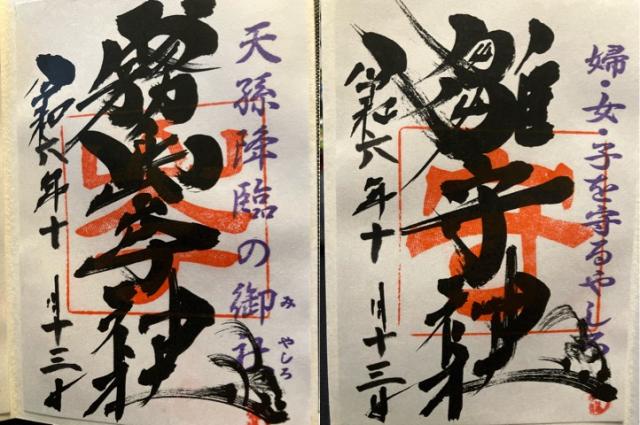 天孫降臨の御社
みやしろ
霧島岑神社
令和六年十月十三日
婦・女・子を守るやしろ
雛守神社
令和六年十月十三日